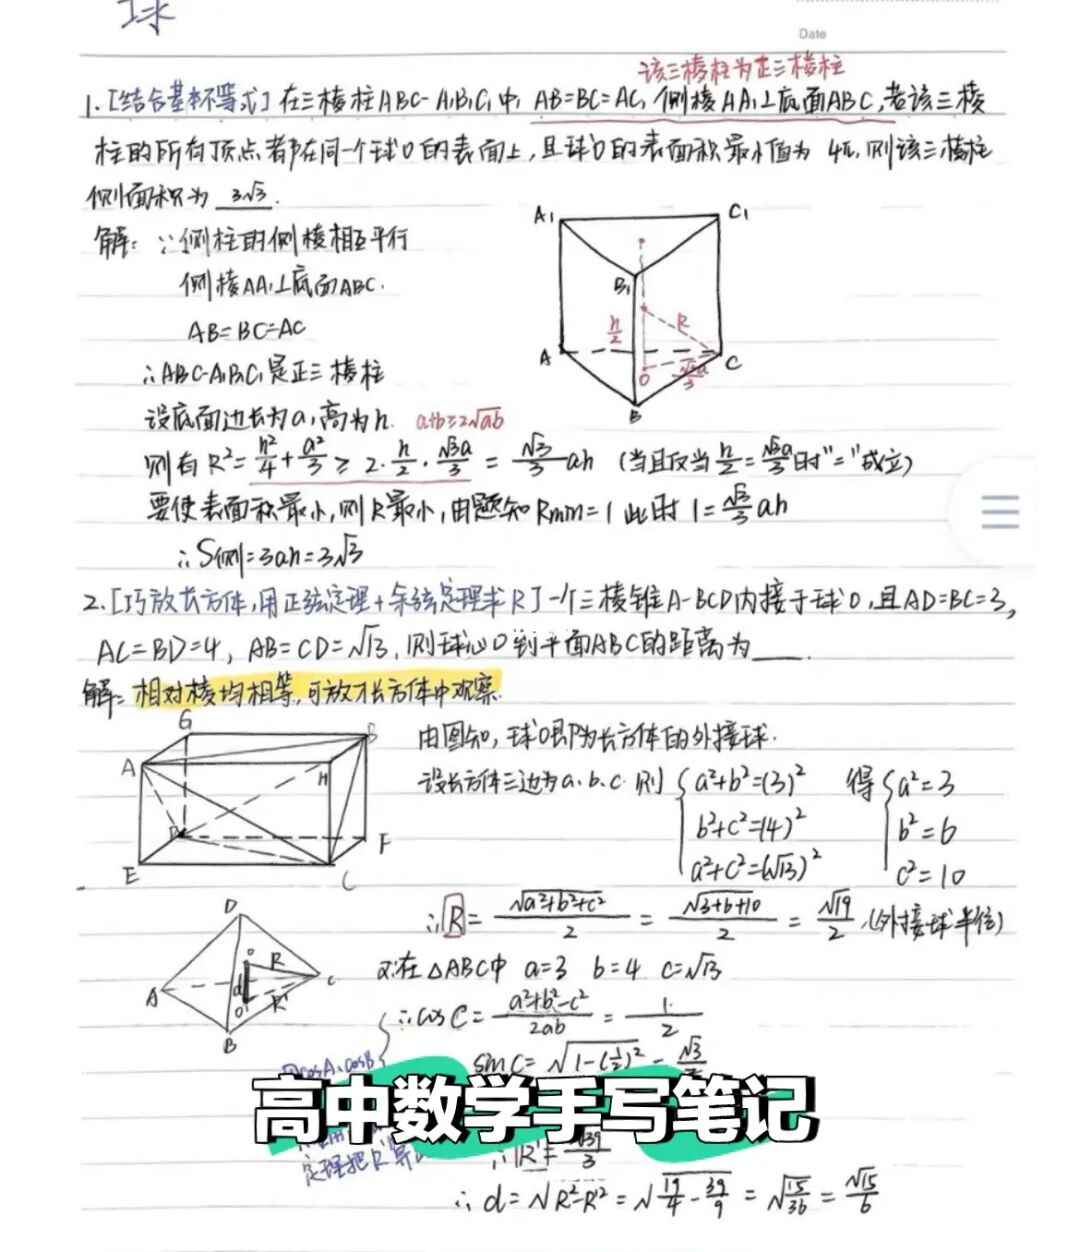 球
Date
该三棱柱为正三棱柱
1.[结合基本不等式]在三棱柱ABC-A₁B₁C₁中,AB=BC=AC,侧棱AA₁⊥底面ABC,若该三棱
柱的所有顶点都在同一个球O的表面上,且球O的表面积最小值为 4π,则该三棱柱
侧面积为 3√3.
解: ∵侧柱的侧棱相互平行
侧棱AA₁⊥底面ABC.
AB=BC=AC
∴ABC-A₁B₁C₁是正三棱柱
设底面边长为a,高为h. a+b≥2√ab
则有 R²=h²/4+a²/3≥2·h/2·√3a/3=√3/3 ah (当且仅当h/2=√3a/3时"="成立)
要使表面积最小,则R最小,由题知Rmin=1 此时1=√3/3 ah
∴S侧=3ah=3√3
A₁ C₁
B₁
h/2 R
A C
O √3a/3
B
2.[巧放长方体,用正弦定理+余弦定理求R]一个三棱锥A-BCD内接于球O,且AD=BC=3,
AC=BD=4, AB=CD=√13,则球心O到平面ABC的距离为___.
解:相对棱均相等,可放于长方体中观察.
G B
A H
D F
E C
由图知,球O即为长方体的外接球.
设长方体三边为a.b.c.则 { a²+b²=(3)² 得 { a²=3
b²+c²=(4)² b²=6
a²+c²=(√13)² c²=10
∴R=√a²+b²+c²/2=√3+6+10/2=√19/2.(外接球半径)
D
O R
A d C
O' R'
B
又在△ABC中 a=3 b=4 c=√13
∴cosC=a²+b²-c²/2ab=1/2
sinC=√1-(1/2)²=√3/2
cosA、cosB
高中数学手写笔记
定理把R
∴R'=√39/3
∴d=√R²-R'²=√19/4-39/9=√15/36=√15/6